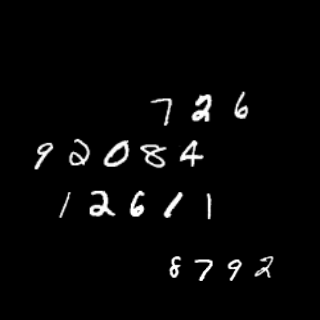 726
92084
12611
8792